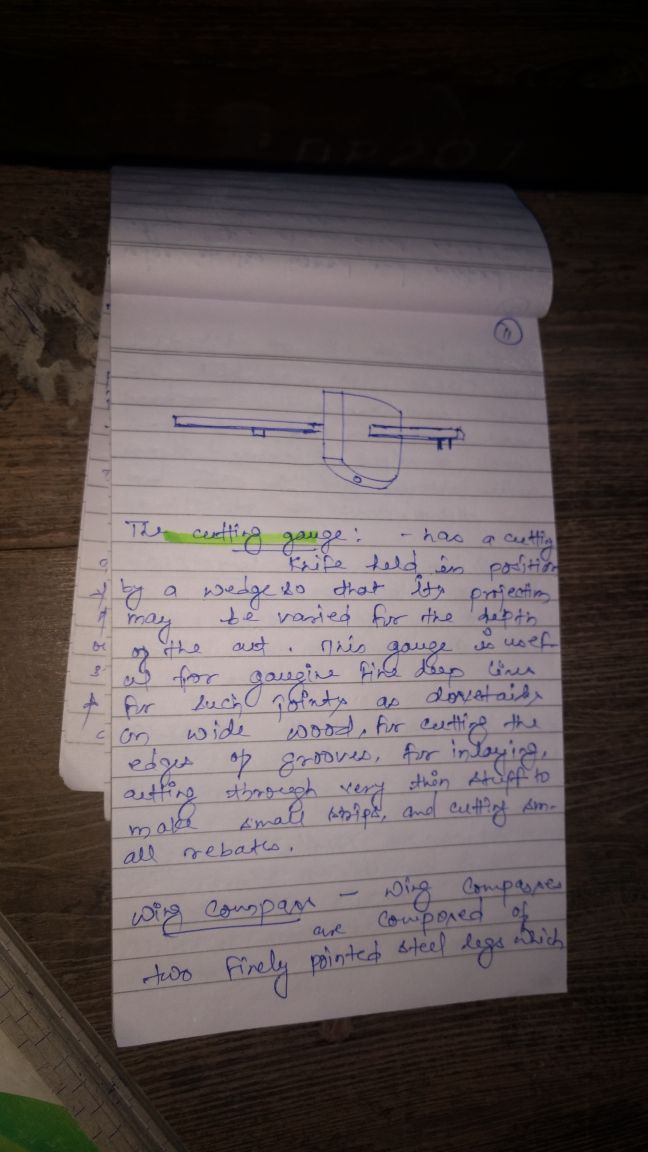 11
The cutting gauge: - has a cutting
Knife held in position
by a wedge so that its projection
may be varied for the depth
of the cut. This gauge is usef-
ul for gauging fine deep lines
for such joints as dovetails
on wide wood, for cutting the
edges of grooves, for inlaying,
cutting through very thin stuff to
make small strips, and cutting sm-
all rebates.
Wing Compass - Wing Compasses
are composed of
two finely pointed steel legs which